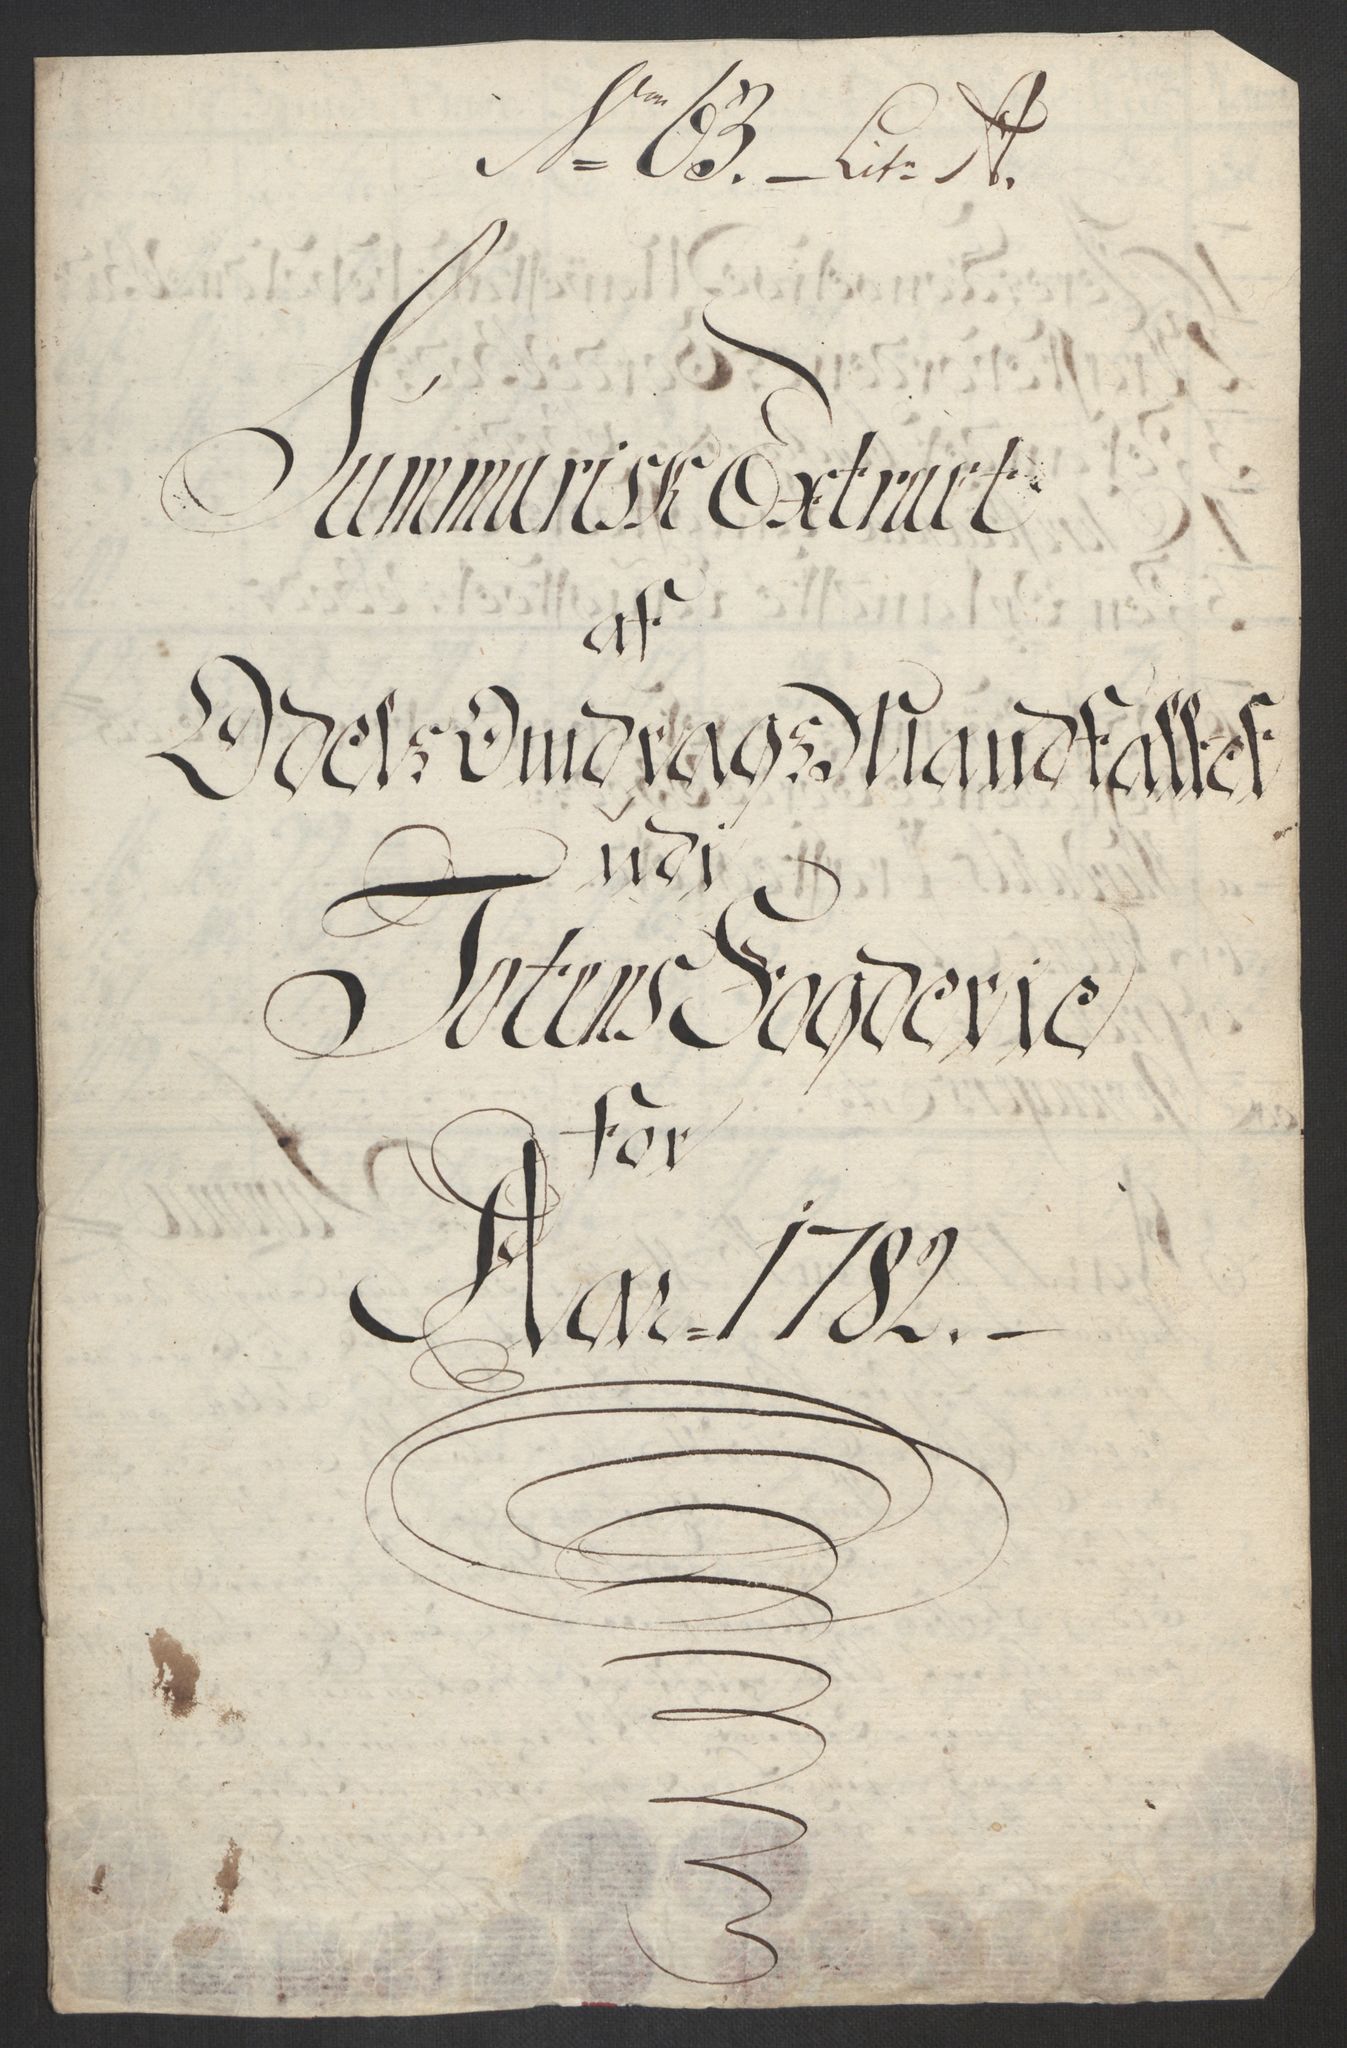 No 63. – Lit= A.
Summarisk Extract
af
Odels Omdrags Mandtallet
udi
Totens Fogderie
for
Aar= 1782. –